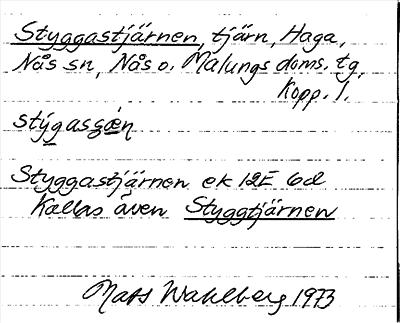 Styggastjärnen, tjärn, Haga,
Nås sn, Nås o. Malungs doms. tg,
Kopp. l.
Styggastjärnen ek 12E 6d
Kallas även Styggtjärnen
Mats Wahlberg 1973